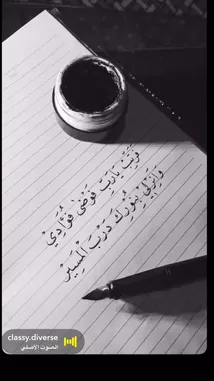 رَتِّبْ يَارَبِّ فَوْضَىٰ فُؤَادِيْ
وَأَنِرْ لِيْ بِنُوْرِكَ دَرْبَ الْمَسِيْر
classy.diverse
الصوت الأصلي